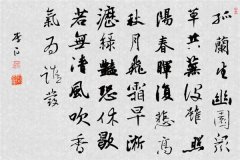 孤蘭生幽園眾
草共蕪沒雖照
陽春暉復悲高
秋月飛霜早淅
瀝綠豔恐休歇
若無清風吹香
氣為誰發